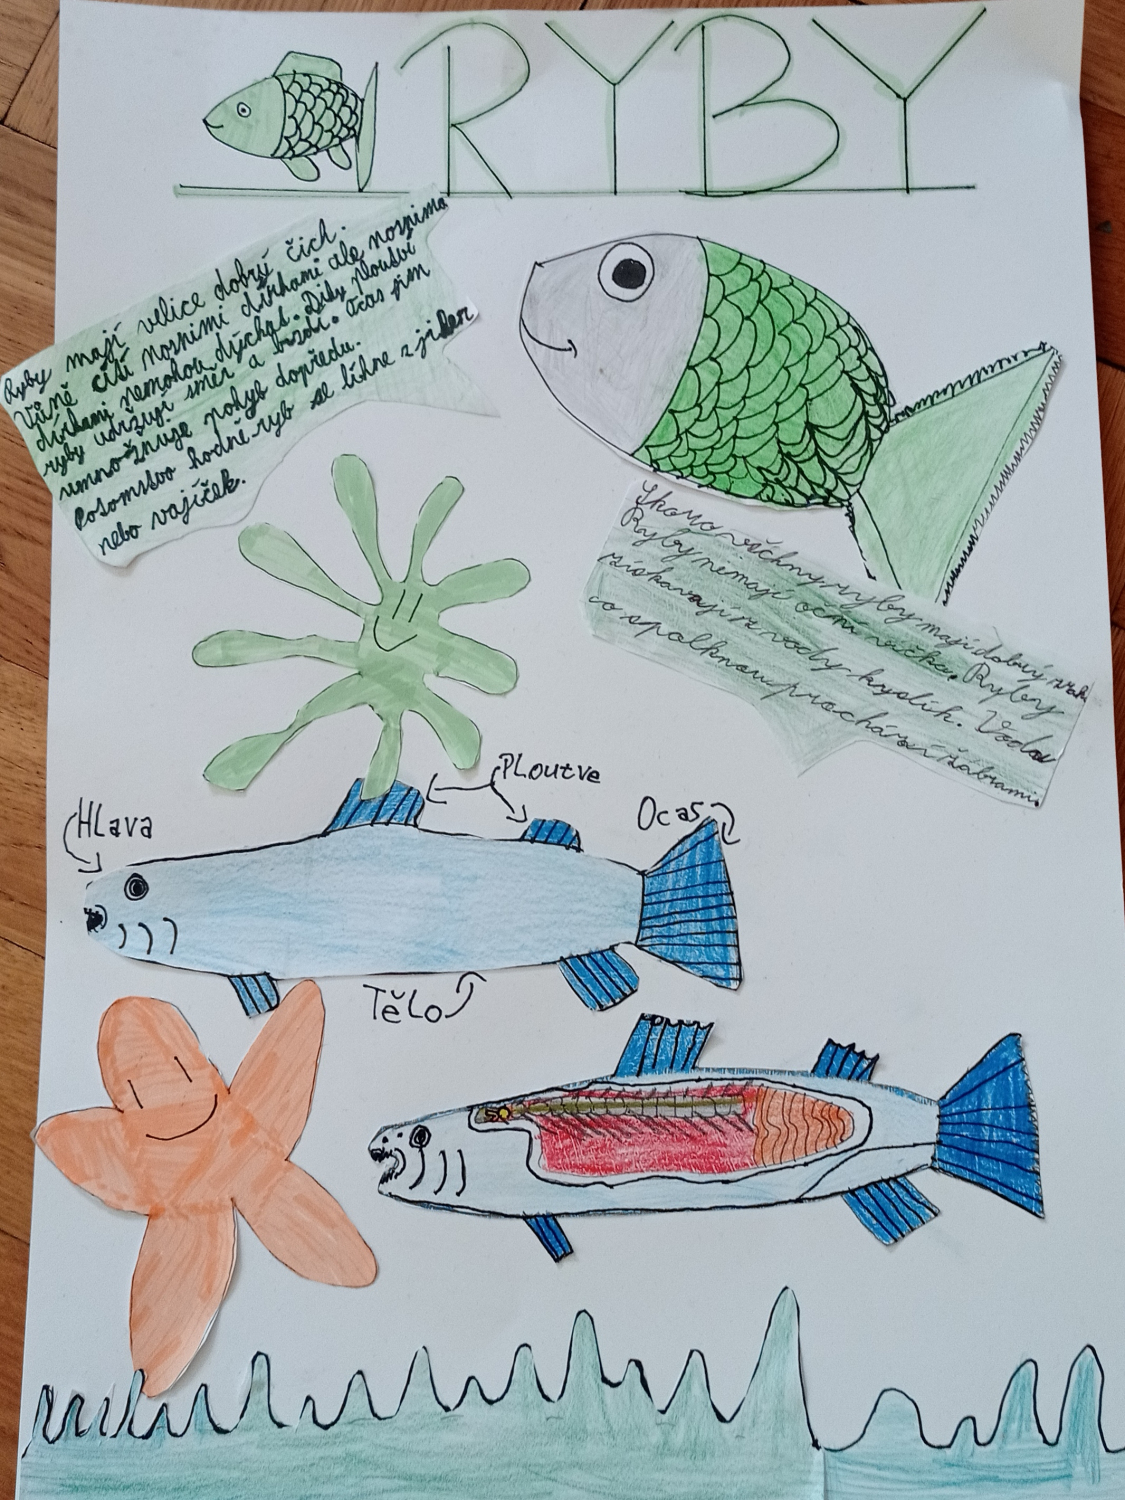 RYBY
Ryby mají velice dobrý čich.
Vůně cítí nosními dírkami ale nosníma
dírkami nemohou dýchat. Díky ploutví
ryby udržují směr a brzdí. Ocas jim
umnožnuje pohyb dopředu.
Potomstvo hodně ryb se líhne z jiker
nebo vajíček.
Skoro všichny ryby mají dobrý zrak
Ryby nemají oční víčka. Ryby
získavají z vody kyslík. Voda
co spolknou prochází žábrami.
Hlava
Ploutve
Ocas
Tělo